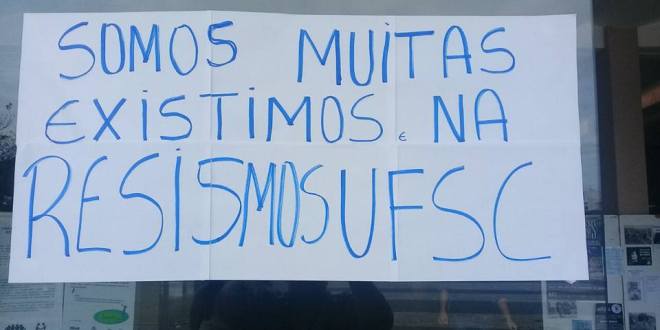 SOMOS MUITAS
EXISTIMOS E NA
RESISMOS UFSC